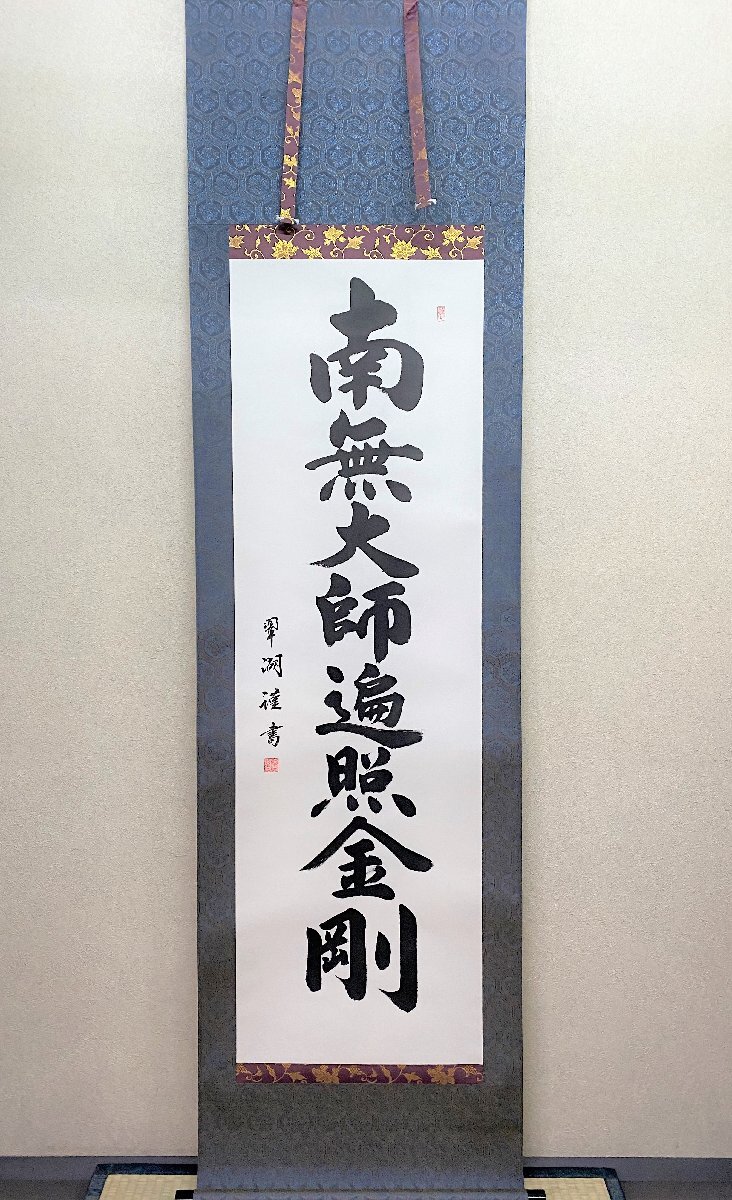 南無大師遍照金剛
翠洞謹書